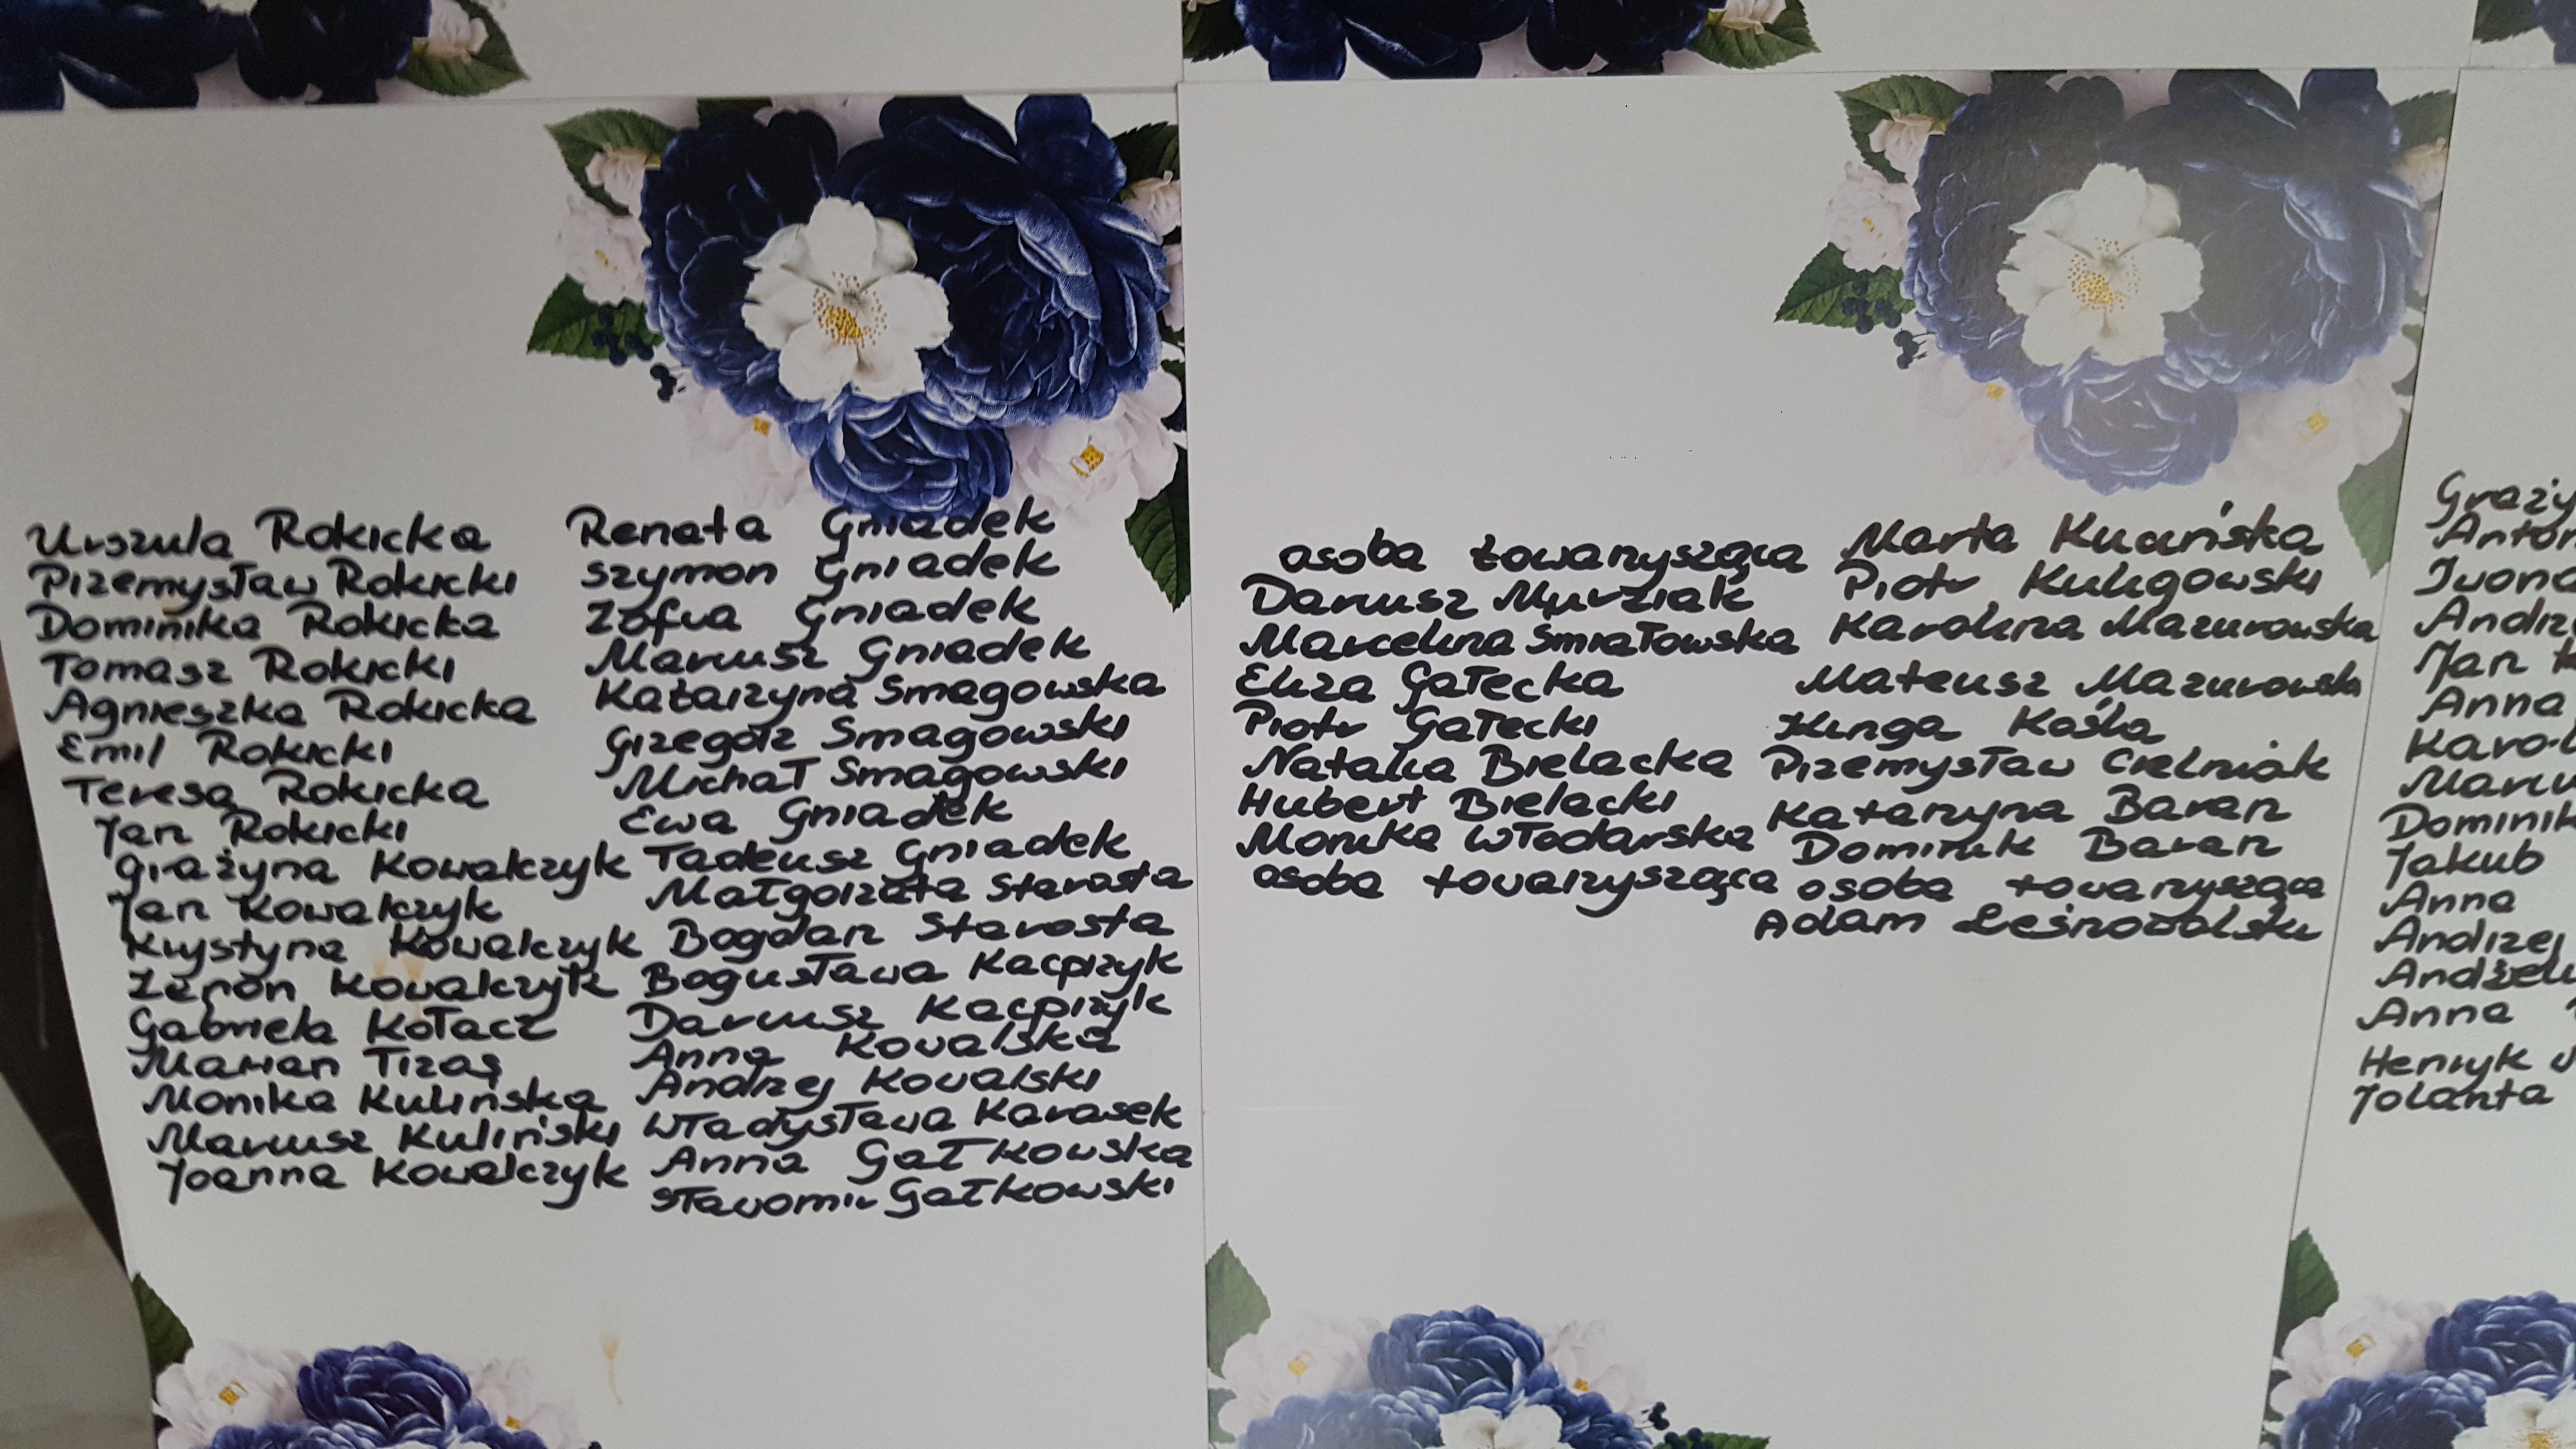 Urszula Rokicka
Przemysław Rokicki
Dominika Rokicka
Tomasz Rokicki
Agnieszka Rokicka
Emil Rokicki
Teresa Rokicka
Jan Rokicki
Grażyna Kowalczyk
Jan Kowalczyk
Krystyna Kowalczyk
Zenon Kowalczyk
Gabriela Kołacz
Marian Tizas
Monika Kulińska
Mariusz Kuliński
Joanna Kowalczyk
Renata Gniadek
Szymon Gniadek
Zofia Gniadek
Mariusz Gniadek
Katarzyna Smagowska
Grzegorz Smagowski
Michał Smagowski
Ewa Gniadek
Tadeusz Gniadek
Małgorzata Starosta
Bogdan Starosta
Bogusława Kacprzyk
Dariusz Kacprzyk
Anna Kowalska
Andrzej Kowalski
Władysława Karasek
Anna Gałkowska
Sławomir Gałkowski
osoba towarzysząca
Dariusz
Marcelina Śmiałowska
Eliza Gałecka
Piotr Gałecki
Natalia Bielacka
Hubert Bielacki
Monika Włodarska
osoba towarzysząca
Marta
Piotr Kuligowski
Karolina Mazurowska
Mateusz Mazurowski
Kinga Kośla
Przemysław Cielniak
Katarzyna Baran
Dominik Baran
osoba towarzysząca
Adam Leśnowolski
Graży
Anton
Iwona
Andrz
Jan
Anna
Karol
Mariu
Dominik
Jakub
Anna
Andrzej
Andżeli
Anna
Henryk
Jolanta